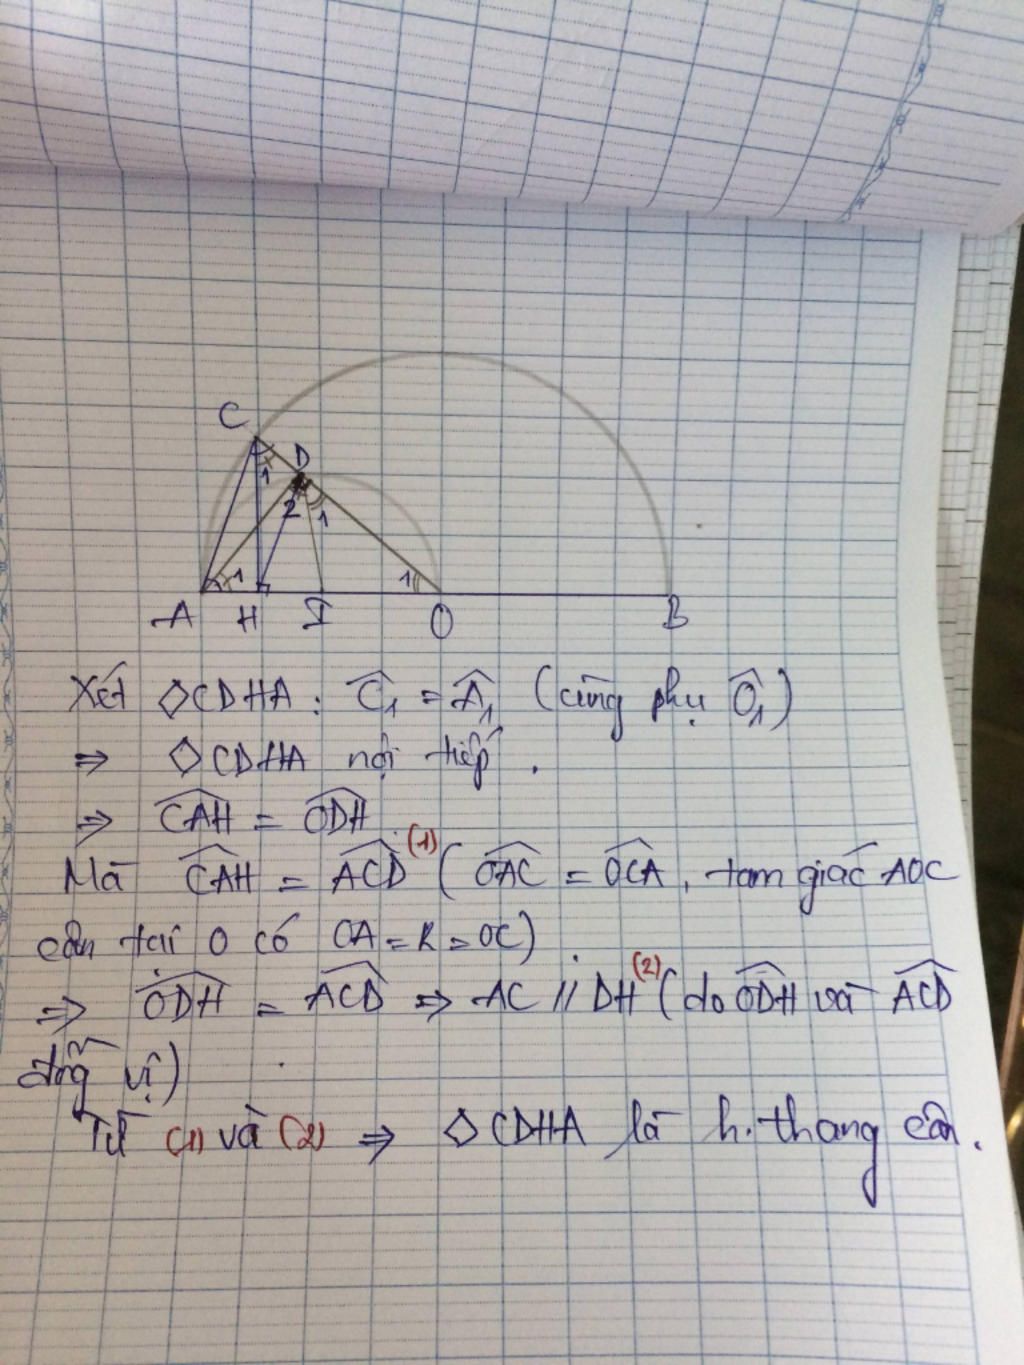 C
D
1
2
1
1
1
A H I O B
Xét ◇CDHA : Ĉ₁ = Â₁ (cùng phụ Ô₁)
⇒ ◇CDHA nội tiếp .
⇒ \widehat{CAH} = \widehat{ODH}
Mà \widehat{CAH} = \widehat{ACD} (1) ( \widehat{OAC} = \widehat{OCA} , tam giác AOC
cân tại O có OA = R = OC)
⇒ \widehat{ODH} = \widehat{ACD} ⇒ AC // DH (2) ( do \widehat{ODH} và \widehat{ACD}
đồng vị)
Từ (1) và (2) ⇒ ◇CDHA là h.thang cân.